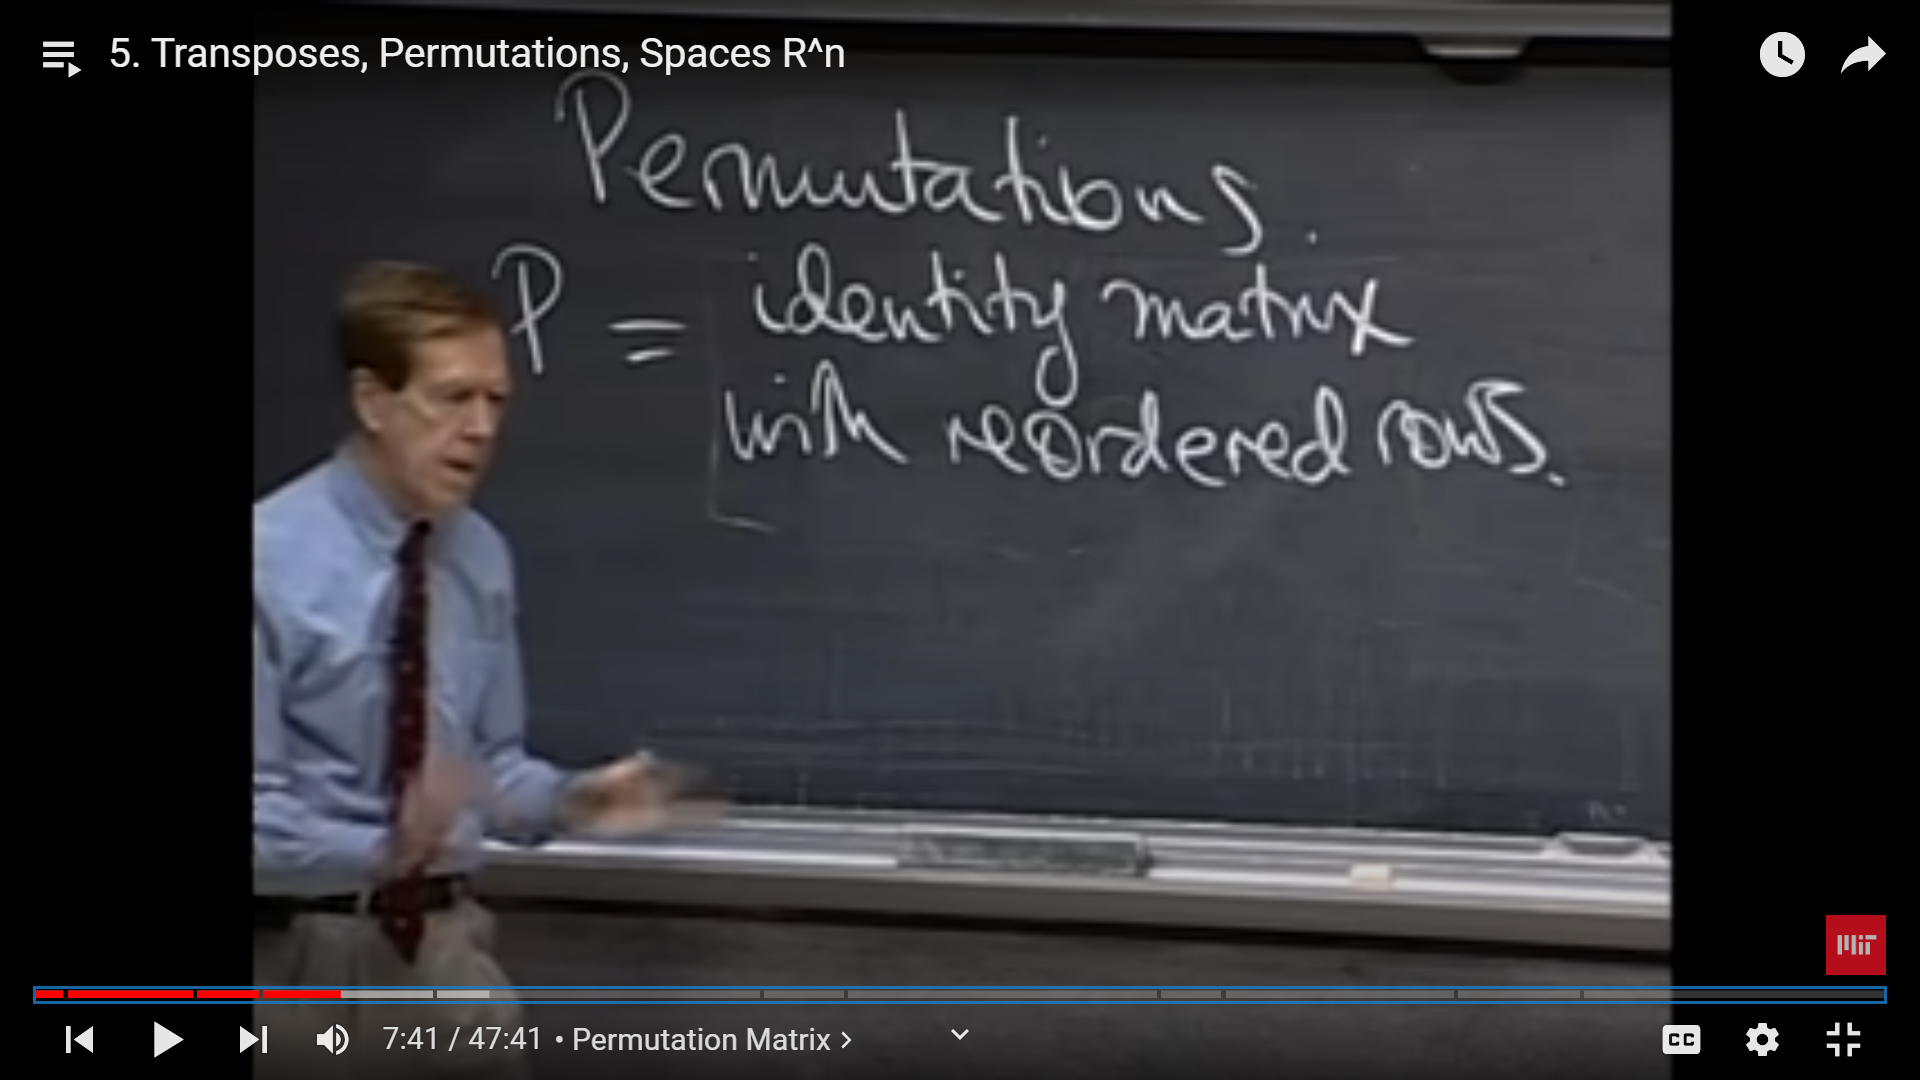 5. Transposes, Permutations, Spaces R^n
Permutations.
P = identity matrix
with reordered rows.
MIT
7:41 / 47:41 • Permutation Matrix >
CC